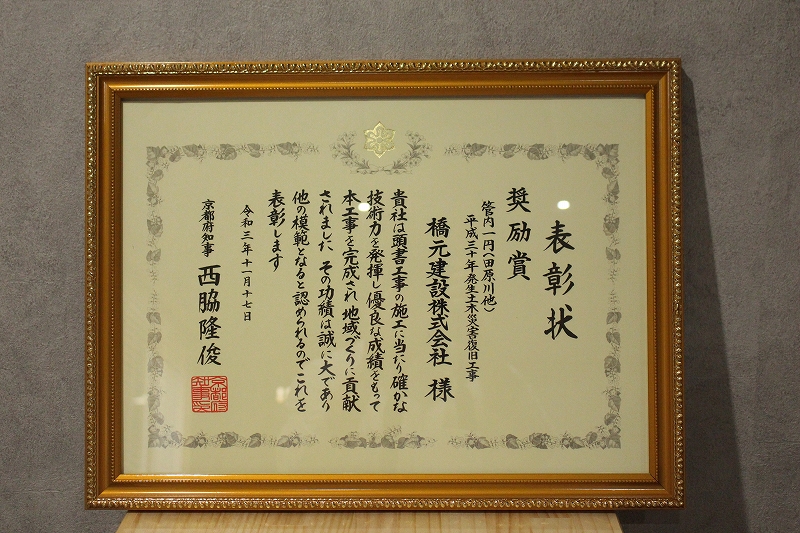 表彰状
奨励賞
管内一円(田原川他)
平成三十年発生土木災害復旧工事
橋元建設株式会社 様
貴社は頭書工事の施工に当たり確かな
技術力を発揮し優良な成績をもって
本工事を完成され地域づくりに貢献
されました その功績は誠に大であり
他の模範となると認められるのでこれを
表彰します
令和三年十一月十七日
京都府知事 西脇隆俊
京都府知事之印